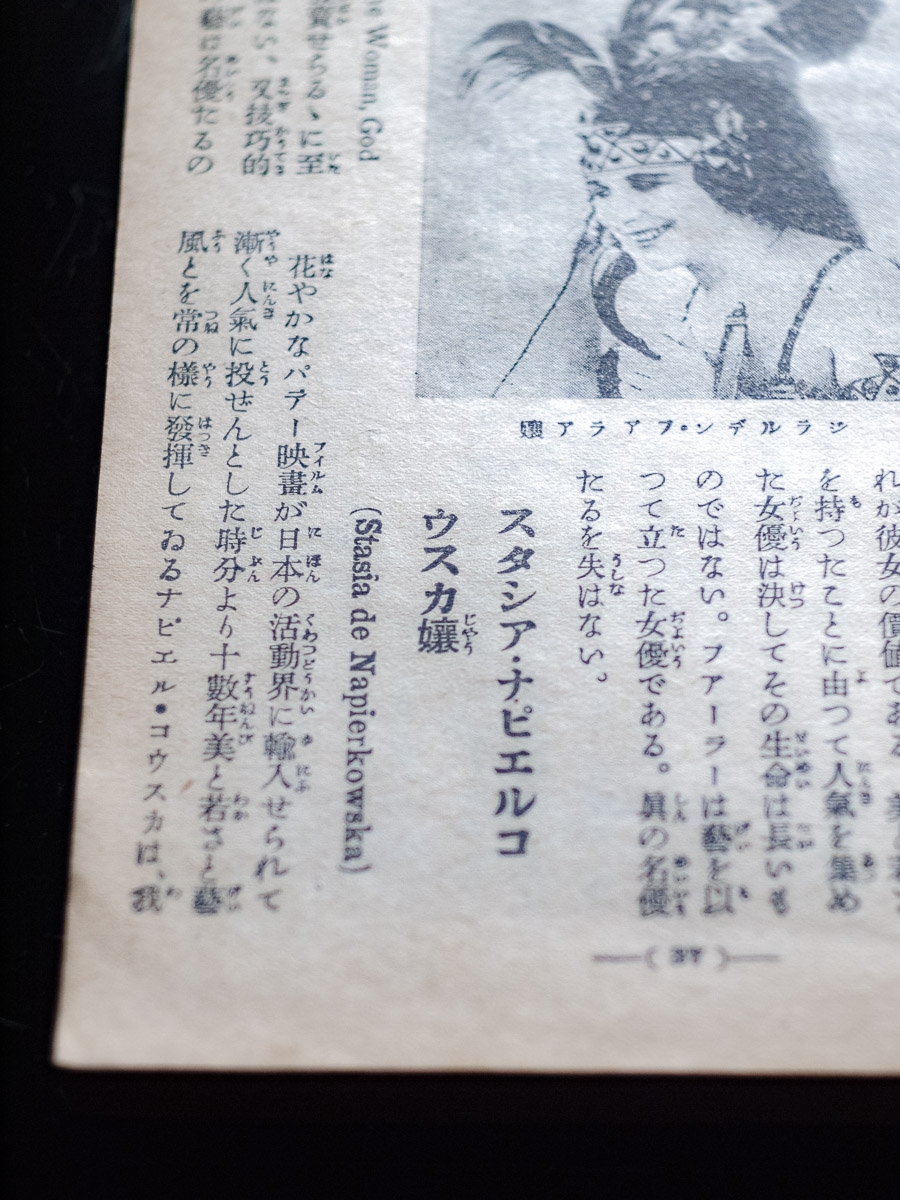 れが彼女の價値である。美と若さ
を持つたことに由つて人氣を集め
た女優は決してその生命は長いも
のではない。フアーラーは藝を以
つて立つた女優である。眞の名優
たるを失はない。
ジラルデン・フアラア孃
スタシア・ナピエルコ
ウスカ孃
(Stasia de Napierkowska)
Woman, God
せらるゝに至
ない、又技巧的
藝は名優たるの
花やかなパテー映畫が日本の活動界に輸入せられて
漸く人氣に投ぜんとした時分より十數年美と若さと藝
風とを常の樣に發揮してゐるナピエル・コウスカは、我
(37)